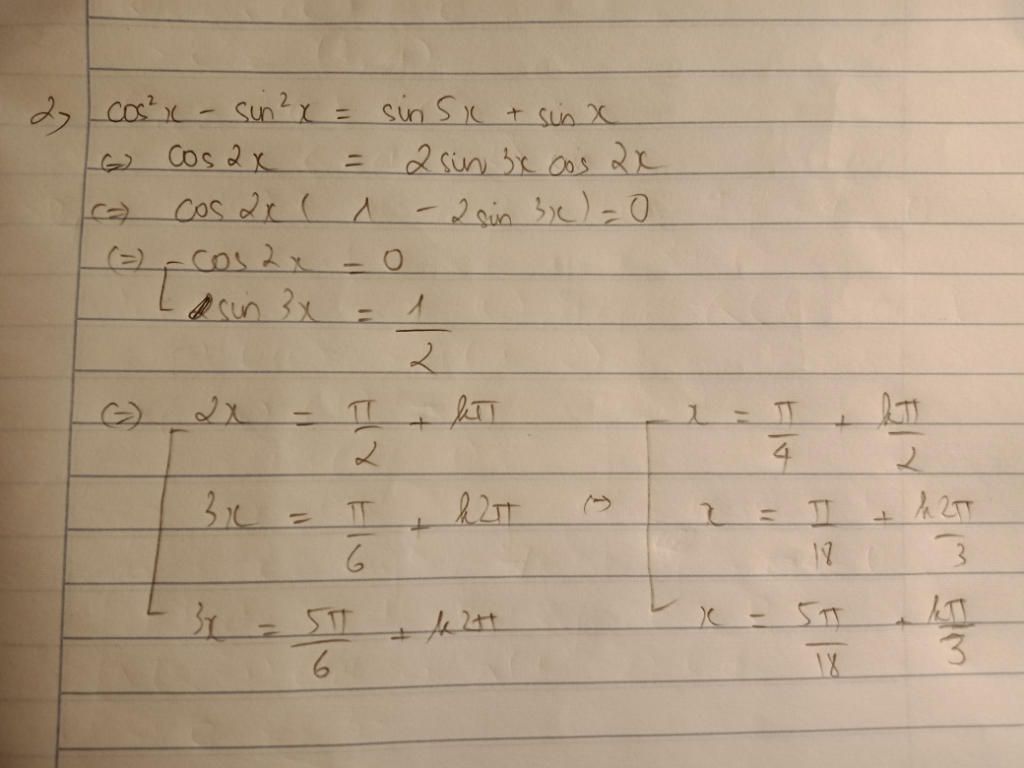 2) cos²x - sin²x = sin 5x + sin x
<=> cos 2x = 2 sin 3x cos 2x
<=> cos 2x ( 1 - 2 sin 3x ) = 0
<=> [ cos 2x = 0
sin 3x = 1/2
<=> [ 2x = π/2 + kπ [ x = π/4 + kπ/2
3x = π/6 + k2π <=> x = π/18 + k2π/3
3x = 5π/6 + k2π x = 5π/18 + kπ/3